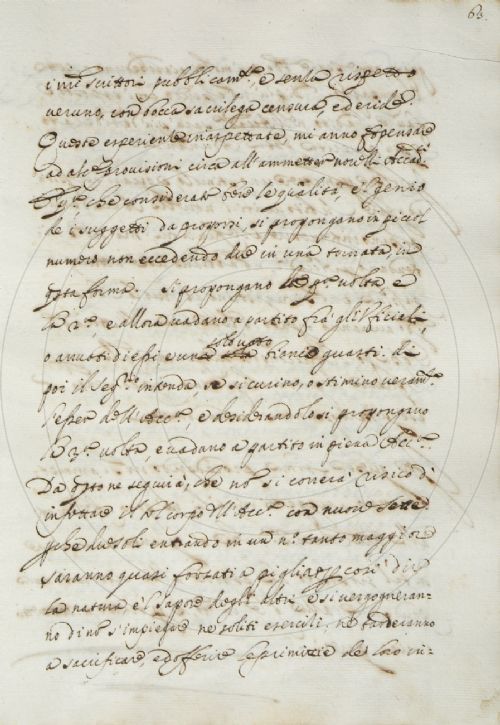 63.
scrittori pubblicam.te, e senza rispetto
veruno, con bocca sacrilega censura, e deride.
Queste esperienze inaspettate, mi anno f pensare
ad alc.e provisioni circa all'ammetter novelli Accad.ci
che considerat le qualità, e 'l Genio
de i suggetti da proporsi, si propongano in piccol
numero non eccedendo due in una tornata, in
q.sta forma. Si propongano la p.a volta e
la 2.a, e allora vadano a partito frà gli Ufficiali,
o arruoti di essi e una solo voto bianco guasti. di
poi il Seg.rio intenda, se si curino, o stimino veram.te
l'esser dell'Acc.a, e desiderandolo si propongano
la 3.a volta, e vadano a partito in piena Acc.a.
Da q.sto ne seguirà, che no si correrà risico di
infettare il bel corpo dell'Acc.a con nuove sette
p.che due soli entrando in un n.o tanto maggiore
saranno quasi forzati a pigliare p così dire
la natura e 'l sapore degli altri e si vergogneran-
no di no s'impiegare ne soliti esercizi, ne tarderanno
a sacrificare, ed offerire le primizie de loro in-